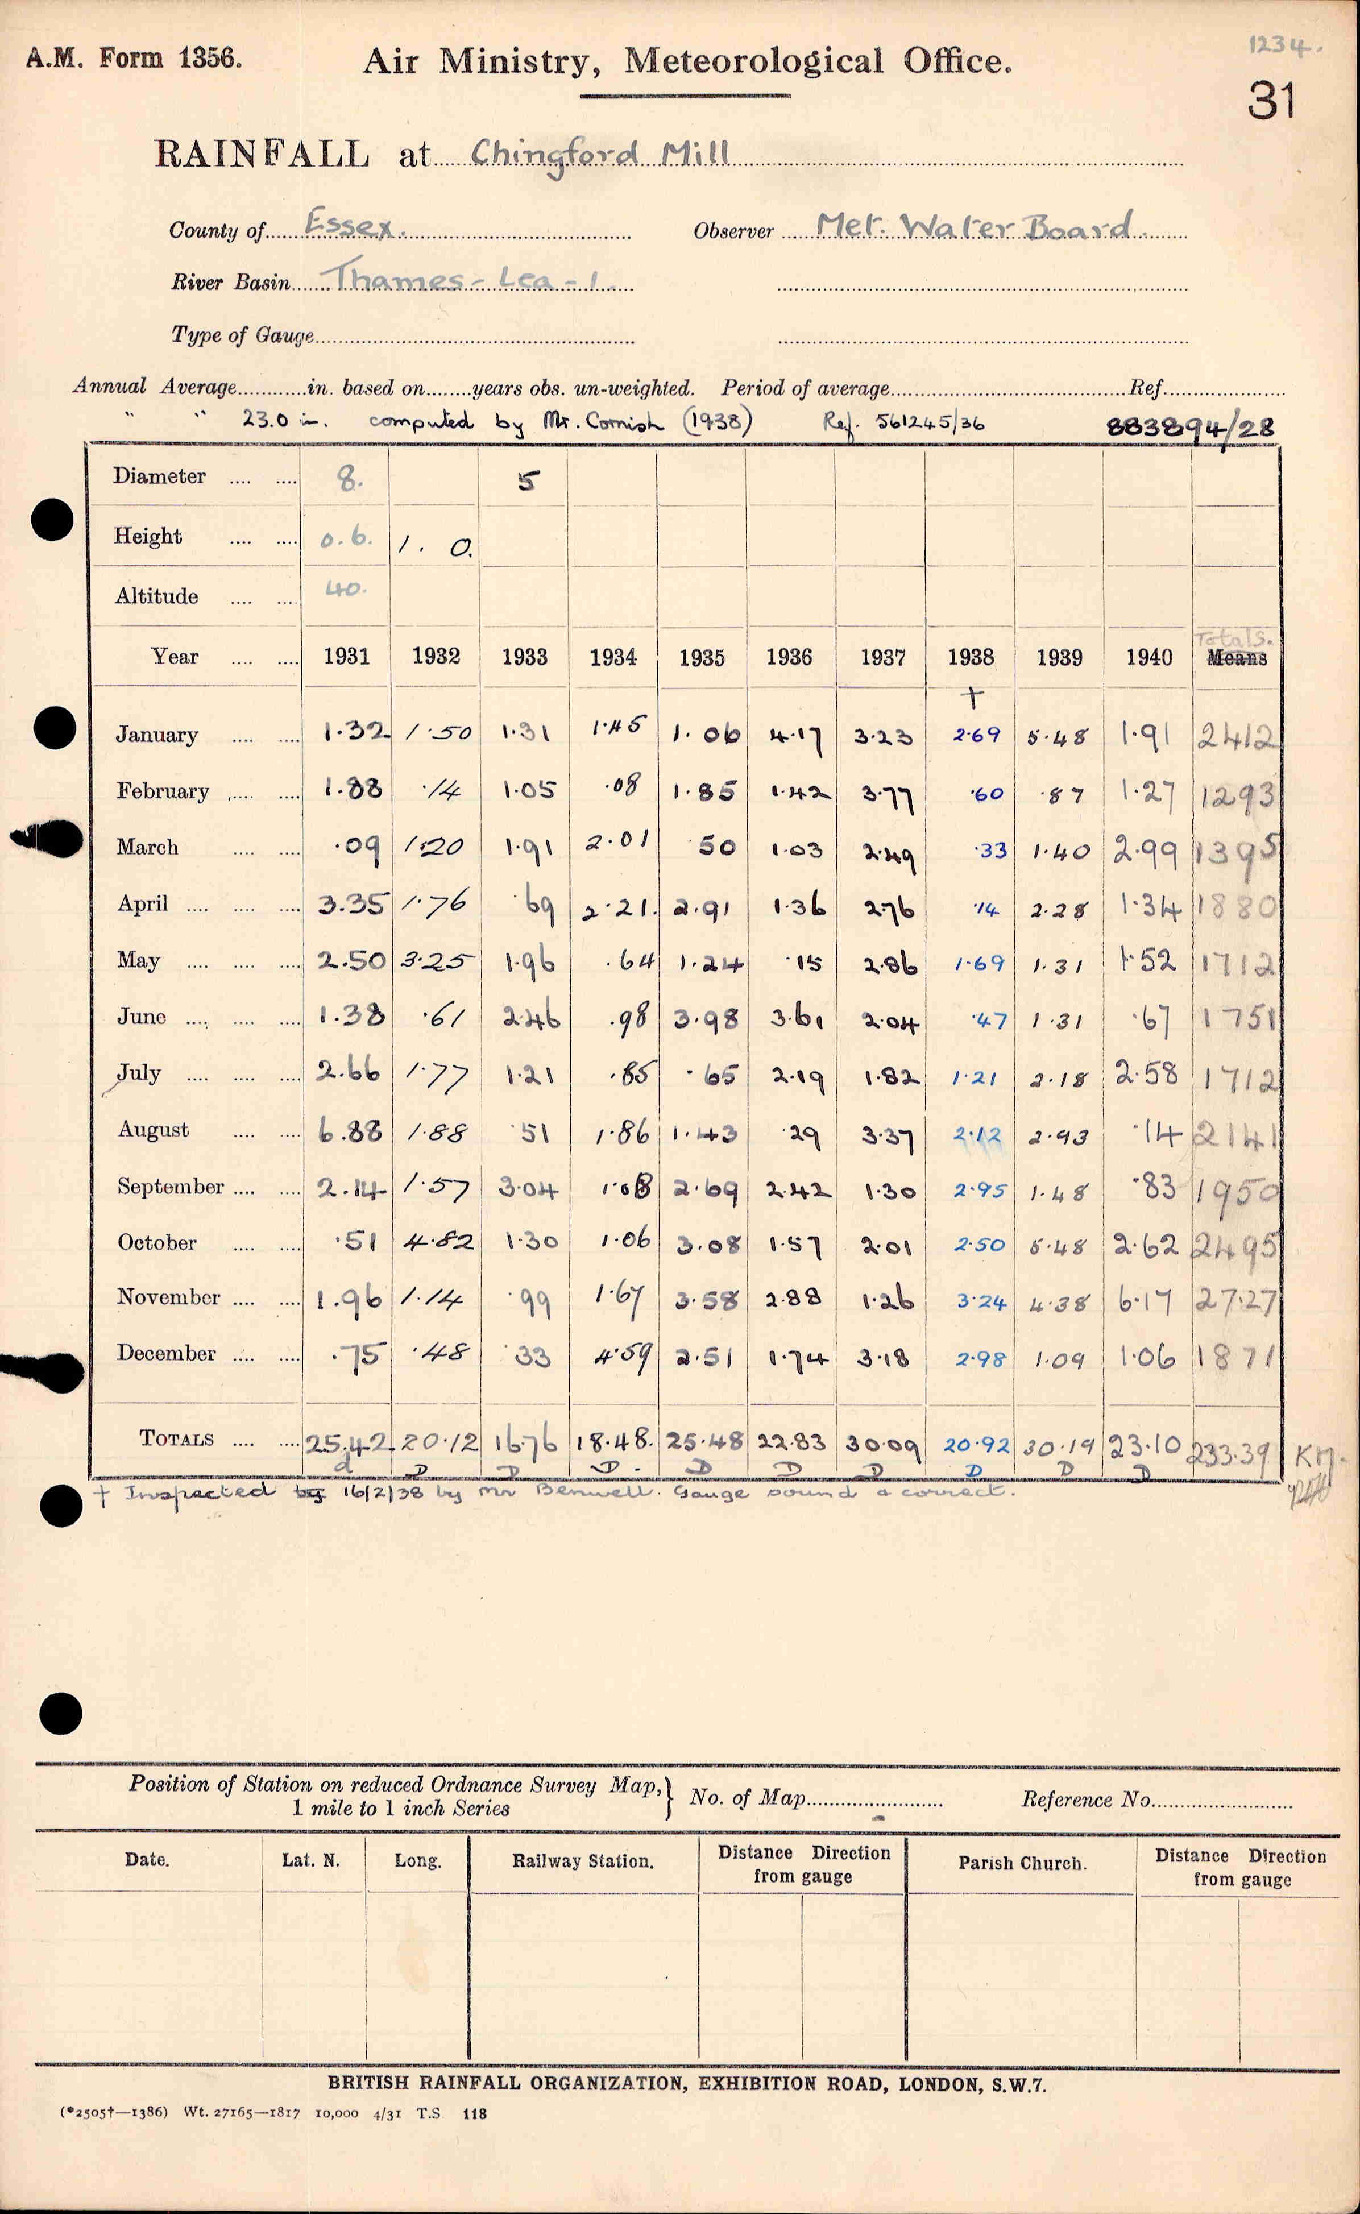 1234.
A.M. Form 1356. Air Ministry, Meteorological Office.
31
RAINFALL at Chingford Mill
County of Essex. Observer Met. Water Board.
River Basin Thames - Lea - 1.
Type of Gauge
Annual Average in. based on years obs. un-weighted. Period of average Ref.
" " 23.0 in. computed by Mr. Cornish (1938) Ref. 561245/36 883894/28
Diameter 8. 5
Height 0.6. 1. 0.
Altitude 40.
Totals.
Year 1931 1932 1933 1934 1935 1936 1937 1938 1939 1940 Means
†
January 1.32 1.50 1.31 1.45 1.06 4.17 3.23 2.69 5.48 1.91 2412
February 1.88 .14 1.05 .08 1.85 1.42 3.77 .60 .87 1.27 1293
March .09 1.20 1.91 2.01 50 1.03 2.49 .33 1.40 2.99 1395
April 3.35 1.76 .69 2.21. 2.91 1.36 276 .14 2.28 1.34 1880
May 2.50 3.25 1.96 .64 1.24 .15 2.86 1.69 1.31 1.52 1712
June 1.38 .61 2.46 .98 3.98 3.61 2.04 .47 1.31 .67 1751
July 2.66 1.77 1.21 .85 .65 2.19 1.82 1.21 2.18 2.58 1712
August 6.88 1.88 .51 1.86 1.43 .29 3.37 2.12 2.93 .14 2141
September 2.14 1.57 3.04 1.08 2.69 2.42 1.30 2.95 1.48 .83 1950
October .51 4.82 1.30 1.06 3.08 1.57 2.01 2.50 5.48 2.62 2495
November 1.96 1.14 .99 1.67 3.58 2.88 1.26 3.24 4.38 6.17 27.27
December .75 .48 .33 4.59 2.51 1.74 3.18 2.98 1.09 1.06 1871
TOTALS 25.42 20.12 16.76 18.48. 25.48 22.83 30.09 20.92 30.19 23.10 233.39 KM.
d D D D. D D D D D D
† Inspected by 16/2/38 by Mr Benwell. Gauge sound & correct.
Position of Station on reduced Ordnance Survey Map,
1 mile to 1 inch Series
No. of Map Reference No.
Date. Lat. N. Long. Railway Station. Distance Direction from gauge Parish Church. Distance Direction from gauge
BRITISH RAINFALL ORGANIZATION, EXHIBITION ROAD, LONDON, S.W.7.
(*2505†—1386) Wt. 27165—1817 10,000 4/31 T.S 118